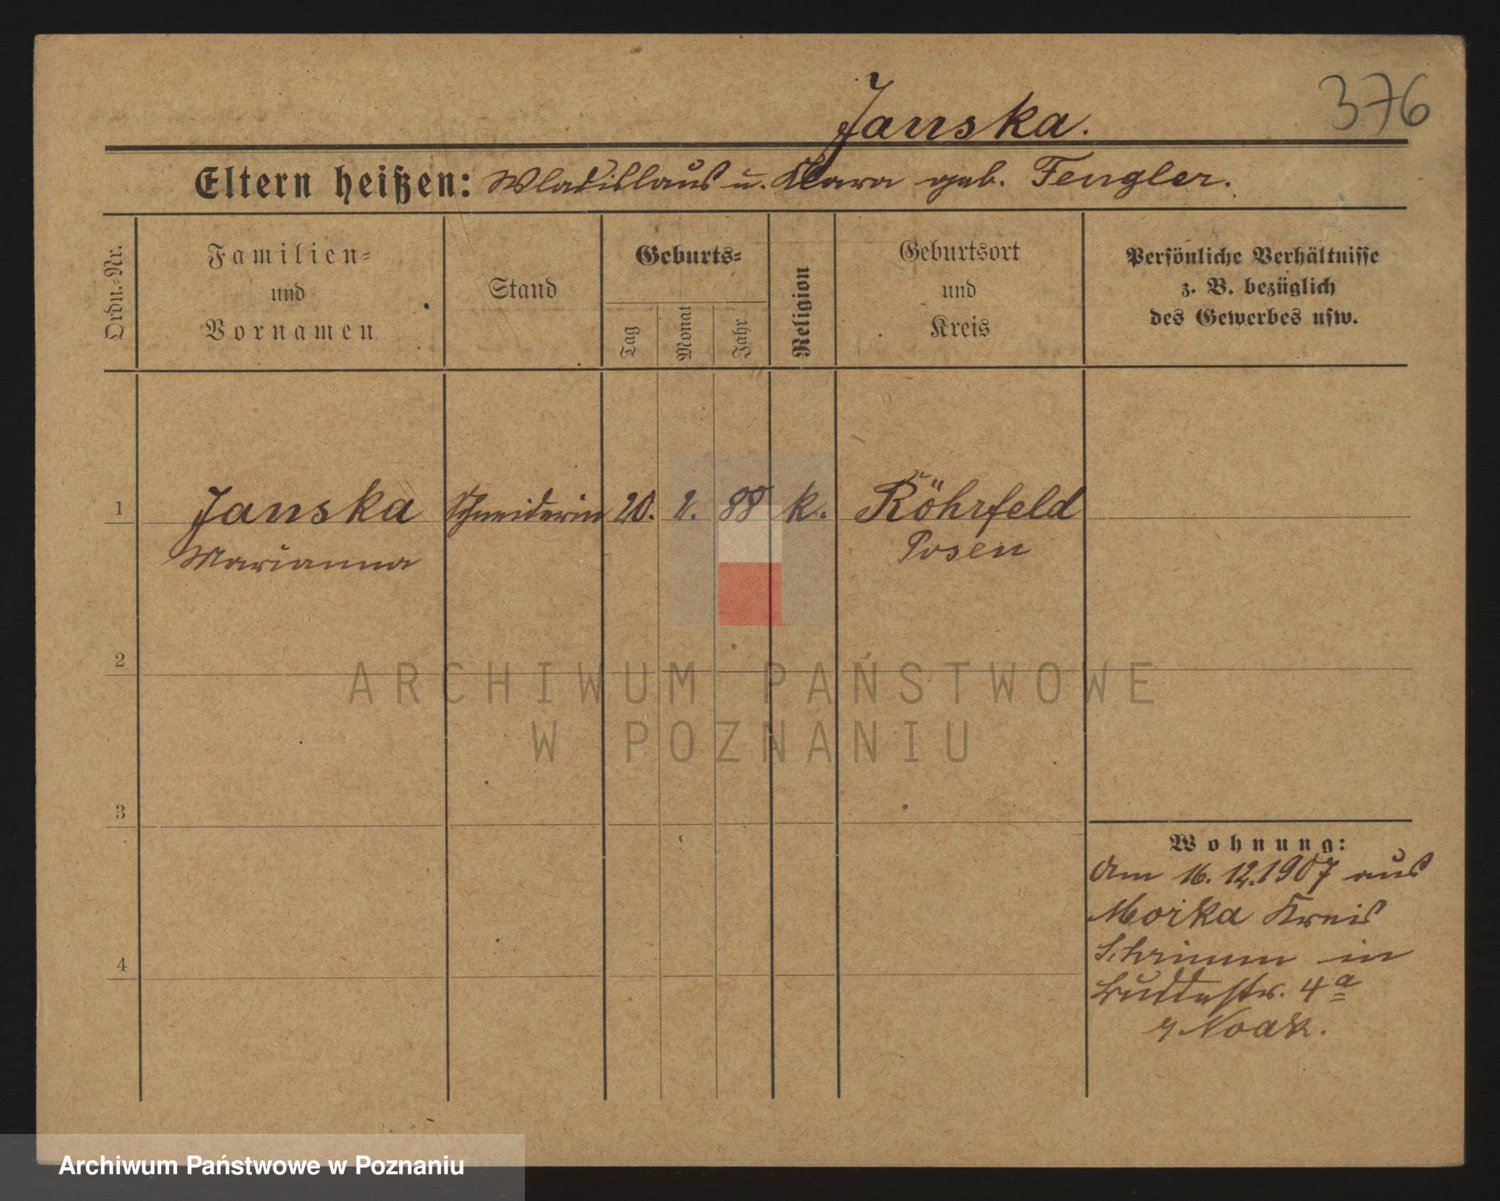 Janska.
376
Eltern heißen: Wladislaus u. Klara geb. Fengler.
Ordn.-Nr.
Familien-
und
Vornamen
Stand
Geburts-
Tag
Monat
Jahr
Religion
Geburtsort
und
Kreis
Persönliche Verhältnisse
z. B. bezüglich
des Gewerbes usw.
1
Janska Schneiderin 20. 2. 88 k. Röhrfeld
Marianna Posen
2
ARCHIWUM PAŃSTWOWE
W POZNANIU
3
Wohnung:
Am 16.12.1907 aus
Morka Kreis
Schrimm in
4
Buddestr. 4a
Noak.
Archiwum Państwowe w Poznaniu